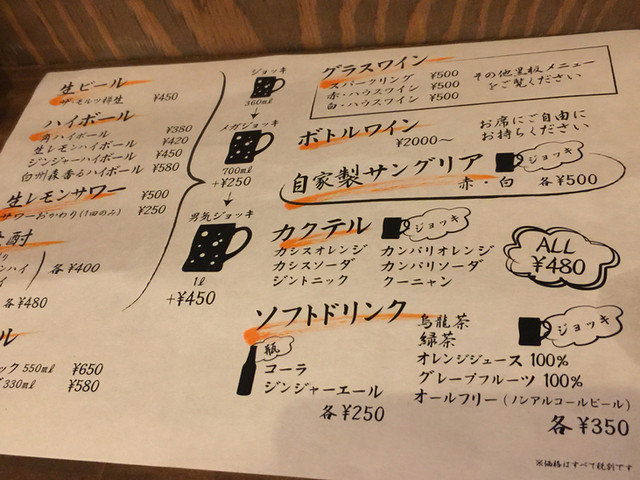 生ビール
ザ・モルツ樽生 ¥450
ハイボール
角ハイボール ¥380
生レモンハイボール ¥420
ジンジャーハイボール ¥450
白州森香るハイボール ¥580
生レモンサワー ¥500
サワーおかわり(1回のみ) ¥250
酎
ハイ
各¥400
各¥480
ル
ック 550mℓ ¥650
330mℓ ¥580
ジョッキ
360mℓ
メガジョッキ
700mℓ
+¥250
男気ジョッキ
1ℓ
+¥450
グラスワイン
スパークリング ¥500
赤・ハウスワイン ¥500
白・ハウスワイン ¥500
その他黒板メニュー
をご覧ください
ボトルワイン
¥2000〜
お席にご自由に
お持ちください
自家製サングリア ジョッキ
赤・白 各¥500
カクテル ジョッキ
カシスオレンジ カンパリオレンジ
カシスソーダ カンパリソーダ
ジントニック クーニャン
ALL
¥480
ソフトドリンク
瓶
コーラ
ジンジャーエール
各¥250
ジョッキ
烏龍茶
緑茶
オレンジジュース 100%
グレープフルーツ 100%
オールフリー(ノンアルコールビール)
各¥350
※価格はすべて税別です